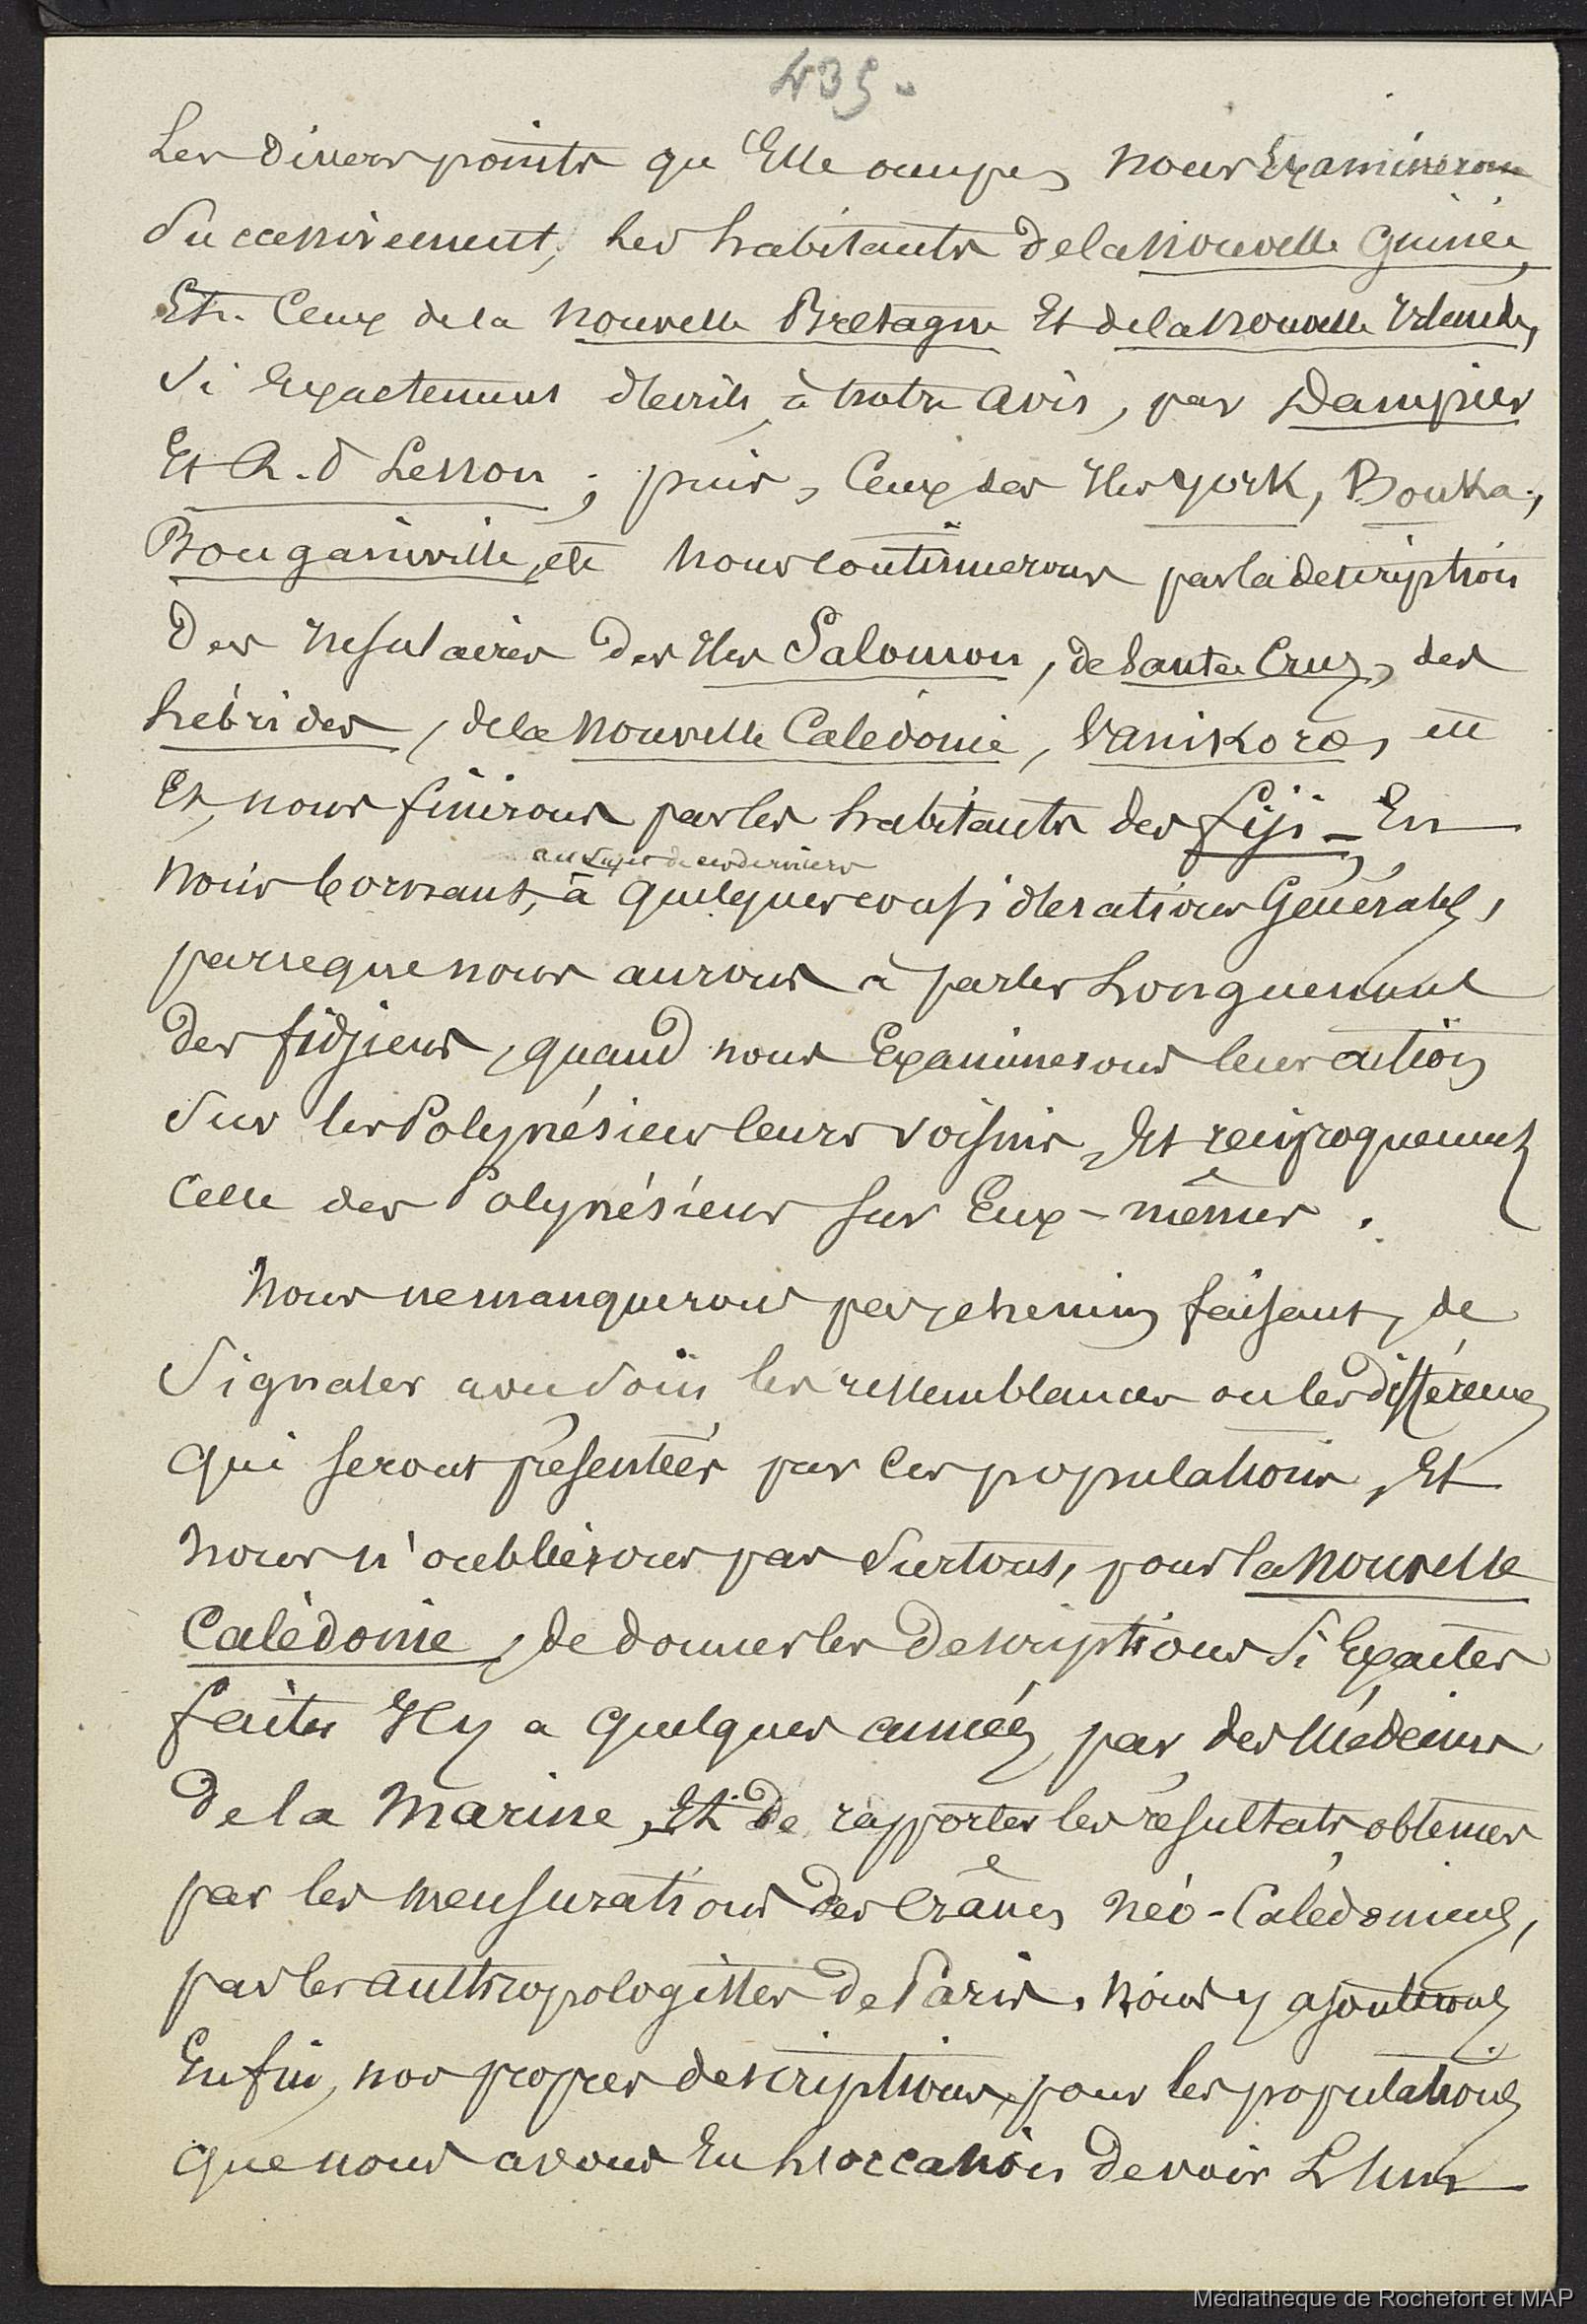 435.
Les divers points qu'Elle occupe, nous Examinerons
Successivement, les habitants de la nouvelle Guinée,
Et ceux de la nouvelle Bretagne Et de la nouvelle Irlande,
Si Exactement décrits, à notre avis, par Dampier
Et R. P. Lesson ; puis, ceux des Iles york, Bouka,
Bougainville, etc nous continuerons par la description
des insulaires des Iles Salomon, de Santa Cruz, des
hébrides, de la nouvelle Calédonie, Vanikoro, etc
Et, nous finirons par les habitants des fiji – En
au sujet de ces derniers
nous bornant, à quelques considérations Générales,
parceque nous aurons à parler Longuement
des fidjiens, quand nous Examinerons leur action
Sur les Polynésiens leurs voisins, Et reciproquement
celle des Polynésiens sur Eux-mêmes.
Nous ne manquerons pas, chemin faisant, de
Signaler avec soin les ressemblances ou les différences
qui seront présentées par ces populations, Et
nous n'oublierons pas Surtout, pour la nouvelle
Calédonie, de donner les descriptions Si Exactes
faites Il y a quelques années, par des Médecins
de la Marine, Et de rapporter les résultats obtenus
par les mensurations des crânes néo-Calédoniens,
par les anthropologistes de Paris. nous y ajouterons
Enfin, nos propres descriptions, pour les populations
que nous avons Eu l'occasion de voir. L'une
Médiathèque de Rochefort et MAP